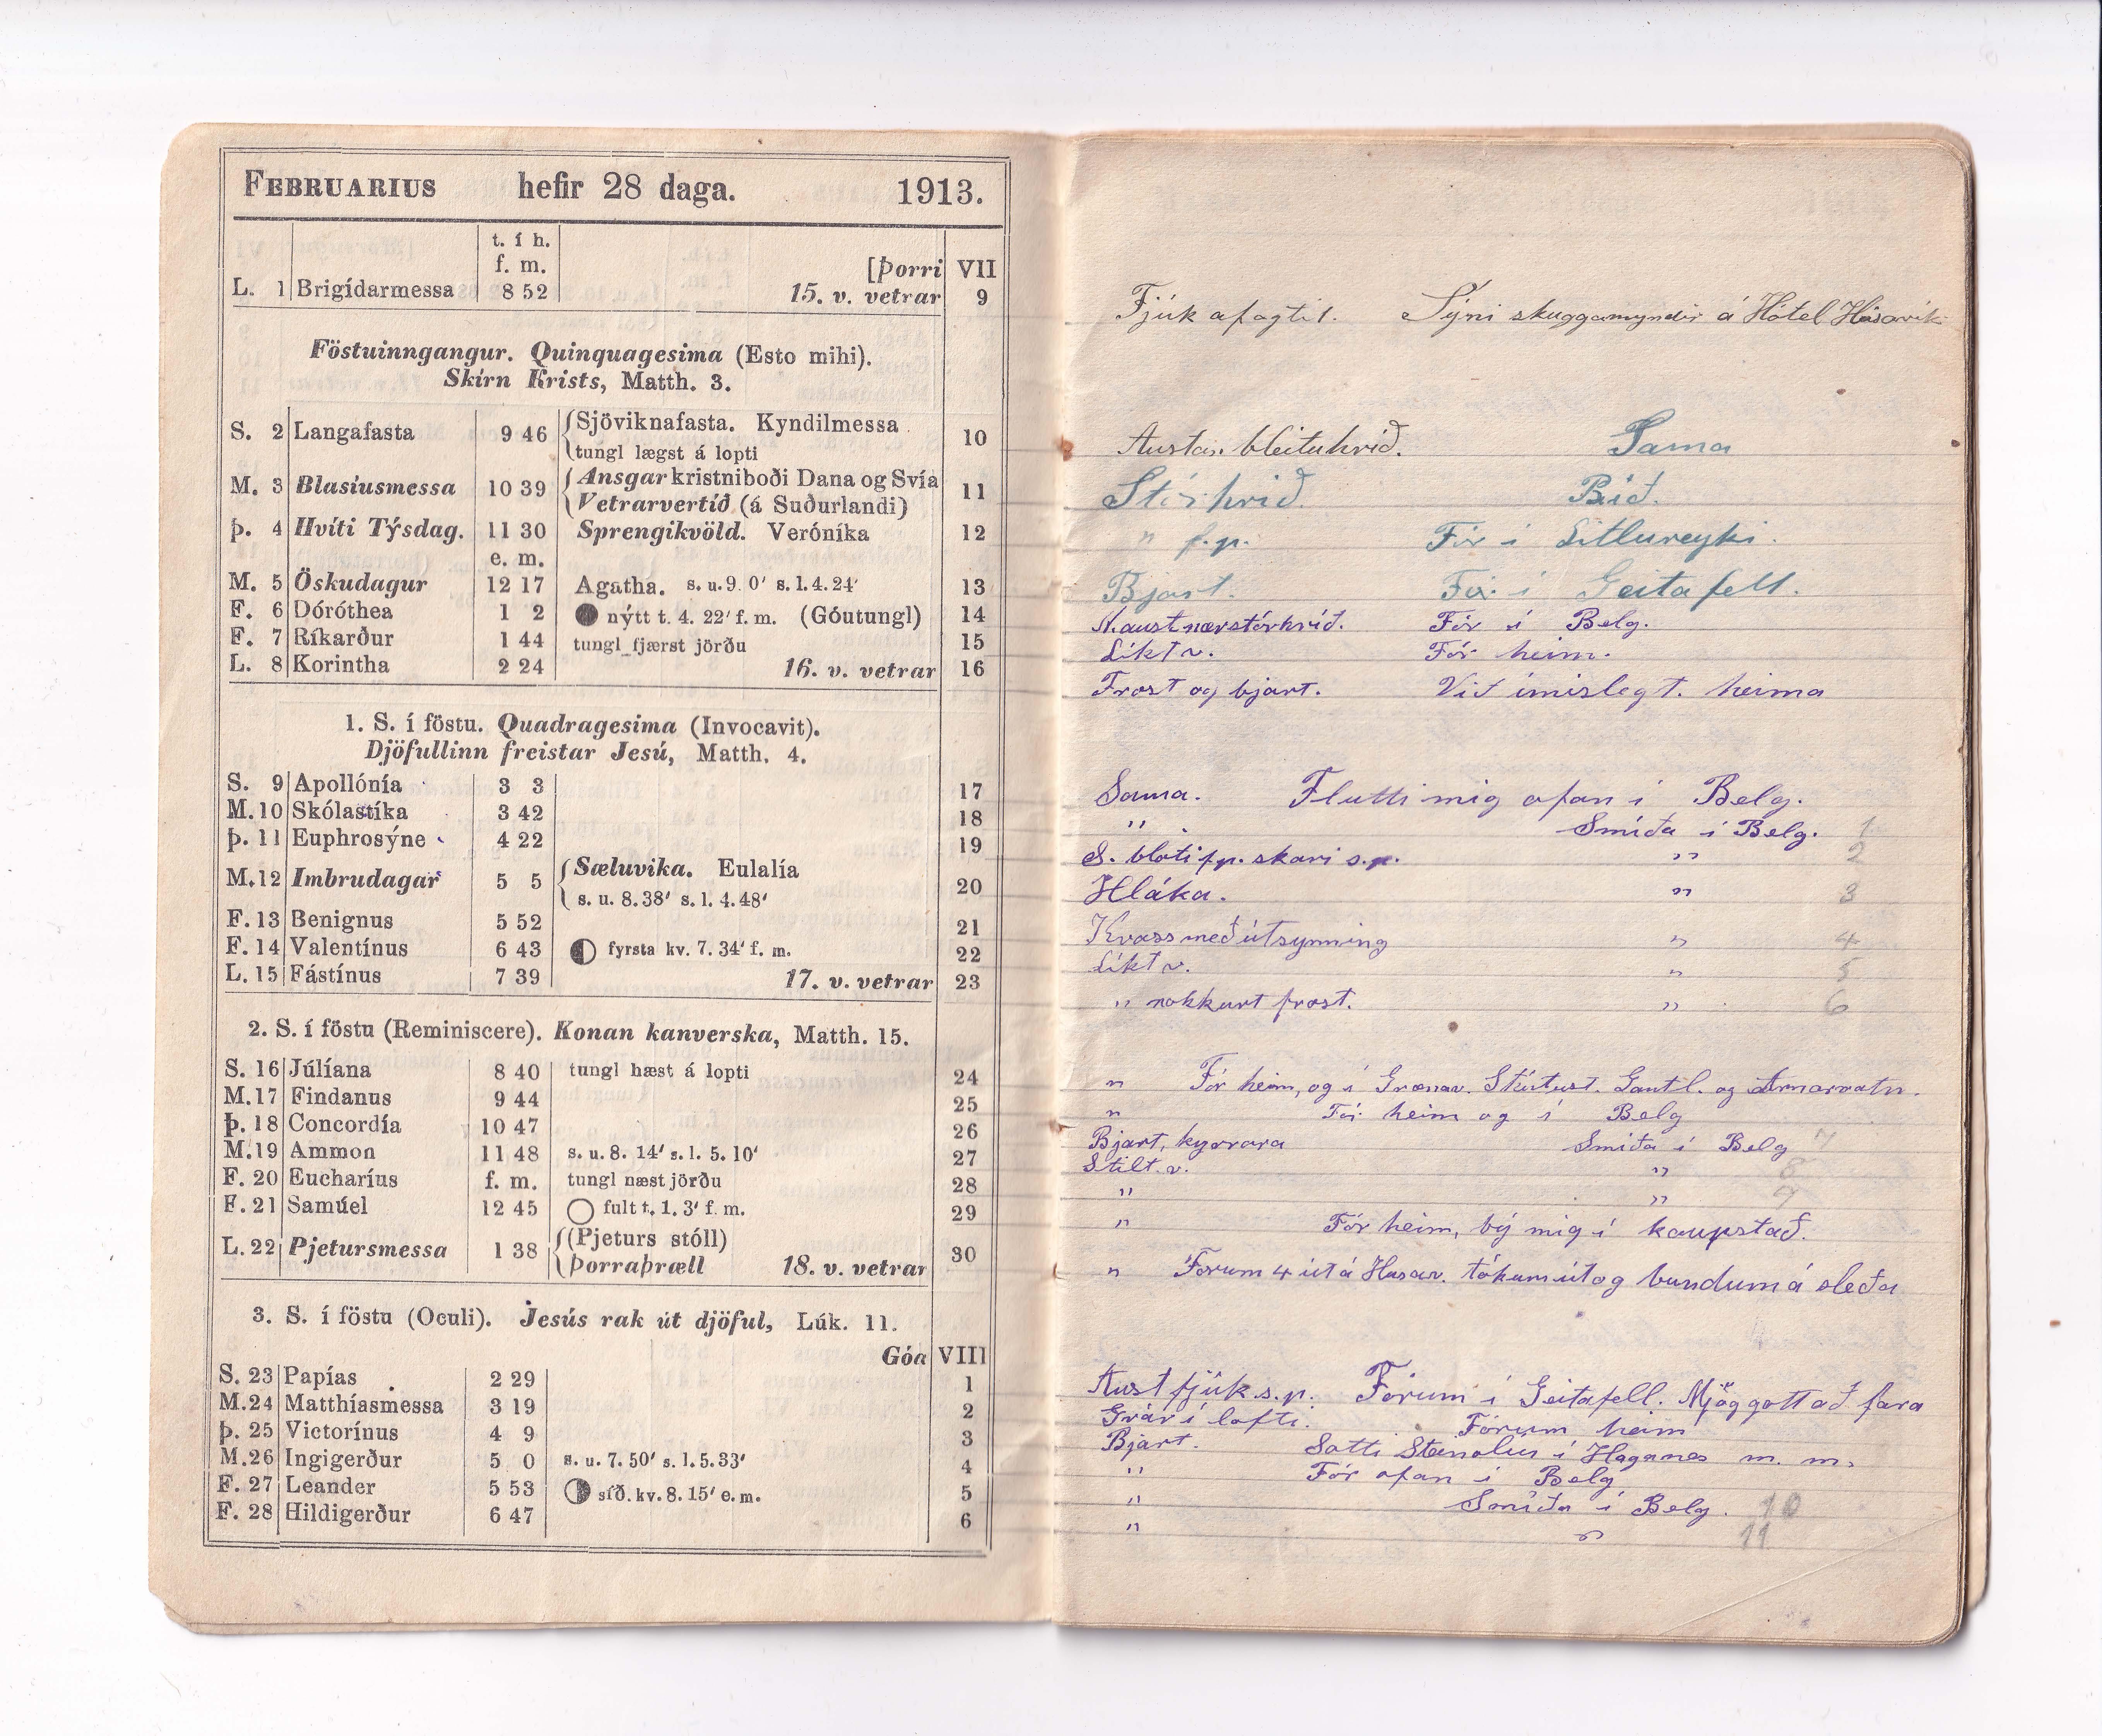 FEBRUARIUS hefir 28 daga. 1913.
t. í h.
f. m. [Þorri VII
L. 1 Brigídarmessa 8 52 15. v. vetrar 9
Föstuinngangur. Quinquagesima (Esto mihi).
Skírn Krists, Matth. 3.
S. 2 Langafasta 9 46 Sjöviknafasta. Kyndilmessa 10
tungl lægst á lopti
M. 3 Blasíusmessa 10 39 Ansgar kristniboði Dana og Svía 11
Vetrarvertíð (á Suðurlandi)
Þ. 4 Hvíti Týsdag. 11 30 Sprengikvöld. Verónika 12
e. m.
M. 5 Öskudagur 12 17 Agatha. s. u. 9. 0′ s. l. 4. 24′ 13
F. 6 Dóróthea 1 2 nýtt t. 4. 22′ f. m. (Góutungl) 14
F. 7 Ríkarður 1 44 tungl fjærst jörðu 15
L. 8 Korintha 2 24 16. v. vetrar 16
1. S. í föstu. Quadragesima (Invocavit).
Djöfullinn freistar Jesú, Matth. 4.
S. 9 Apollónía 3 3 17
M. 10 Skólastíka 3 42 18
Þ. 11 Euphrosýne 4 22 19
M. 12 Imbrudagar 5 5 Sæluvika. Eulalía 20
s. u. 8. 38′ s. l. 4. 48′
F. 13 Benignus 5 52 21
F. 14 Valentínus 6 43 fyrsta kv. 7. 34′ f. m. 22
L. 15 Fástínus 7 39 17. v. vetrar 23
2. S. í föstu (Reminiscere). Konan kanverska, Matth. 15.
S. 16 Júlíana 8 40 tungl hæst á lopti 24
M. 17 Findanus 9 44 25
Þ. 18 Concordía 10 47 26
M. 19 Ammon 11 48 s. u. 8. 14′ s. l. 5. 10′ 27
F. 20 Eucharíus f. m. tungl næst jörðu 28
F. 21 Samúel 12 45 fult t. 1. 3′ f. m. 29
L. 22 Pjetursmessa 1 38 (Pjeturs stóll) 30
Þorraþræll 18. v. vetrar
3. S. í föstu (Oculi). Jesús rak út djöful, Lúk. 11.
Góa VIII
S. 23 Papías 2 29 1
M. 24 Matthíasmessa 3 19 2
Þ. 25 Victorínus 4 9 3
M. 26 Ingigerður 5 0 s. u. 7. 50′ s. l. 5. 33′ 4
F. 27 Leander 5 53 síð. kv. 8. 15′ e. m. 5
F. 28 Hildigerður 6 47 6
Fjúk af og til. Sýni skuggamyndir á Hótel Húsavík
Austan bleituhríð. Sama
Stórhríð. Bíð.
" f.p. Fór í Litlureyki.
Bjart. Fór í Geitafell.
N. aust nærstórhríð. Fór í Belg.
Líkt v. Fór heim.
Frost og bjart. Við ímislegt. heima
Sama. Flutti mig ofan í Belg.
" Smíða í Belg. 1
S. bloti f.p. skari s.p. " 2
Hláka. " 3
Kvass með útsynning " 4
Líkt v. " 5
" nokkurt frost. " 6
" Fór heim, og í Grænav. Skútust. Gautl. og Arnarvatn.
" Fór heim og í Belg
Bjart, kyrrara Smíða í Belg 7
Stilt. v. " 8
" " 9
" Fór heim, bý mig í kaupstað.
" Förum 4 út á Húsav. tókum út og bundum á sleða
Aust fjúk s.p. Förum í Geitafell. Mjög gott að fara
Grár í lofti. Förum heim
Bjart. Sótti Steinolíu í Haganes m. m.
" Fór ofan í Belg
" Smíða í Belg. 10
" " 11